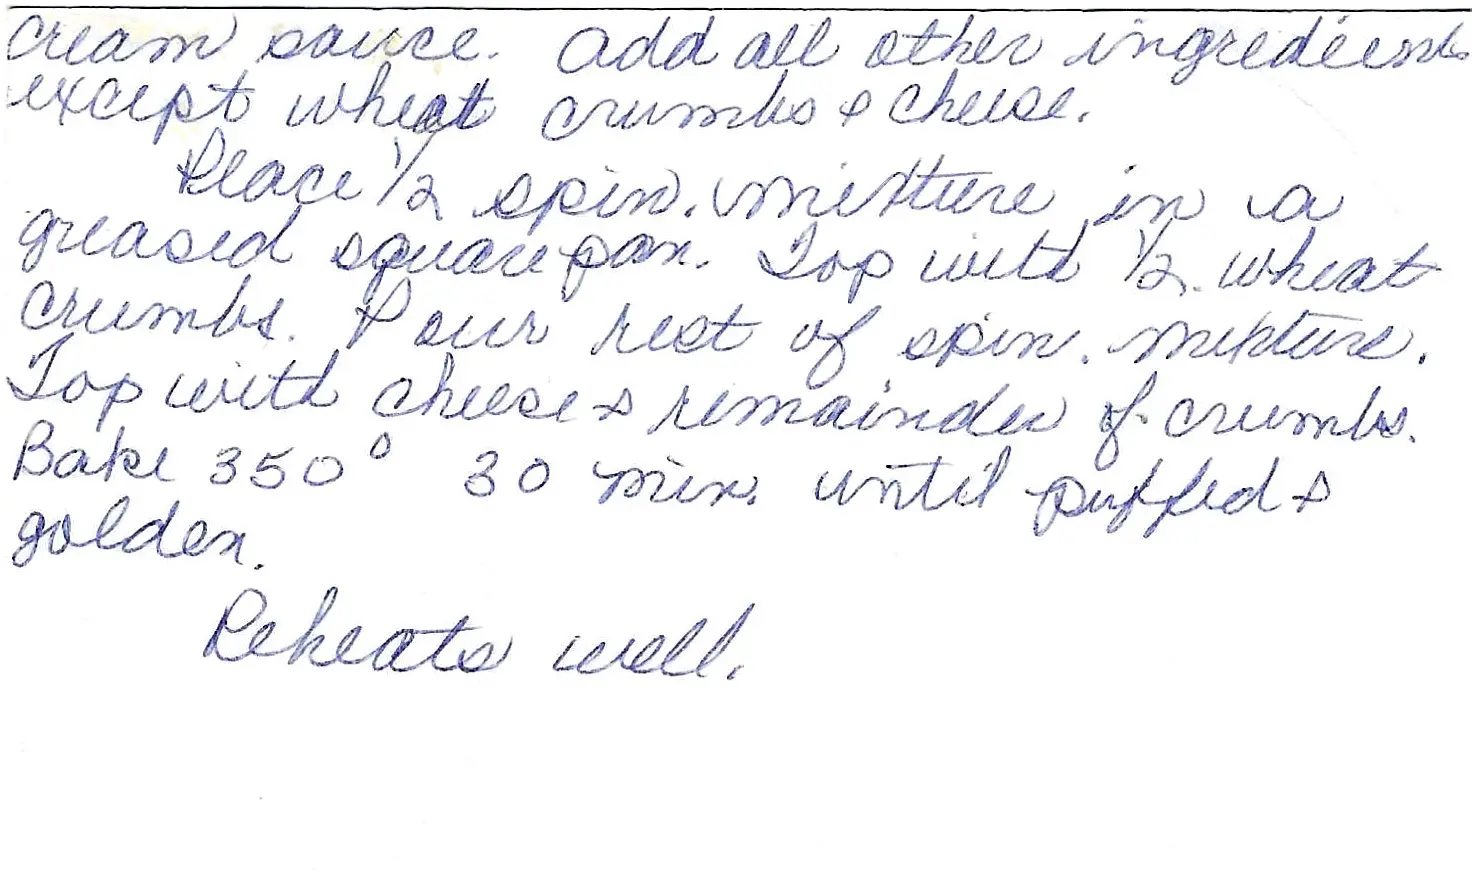 cream sauce. Add all other ingredients
except wheat crumbs & cheese.
Place 1/2 spin. mixture in a
greased square pan. Top with 1/2 wheat
crumbs. Pour rest of spin. mixture.
Top with cheese & remainder of crumbs.
Bake 350° 30 min. until puffed &
golden.
Reheats well.